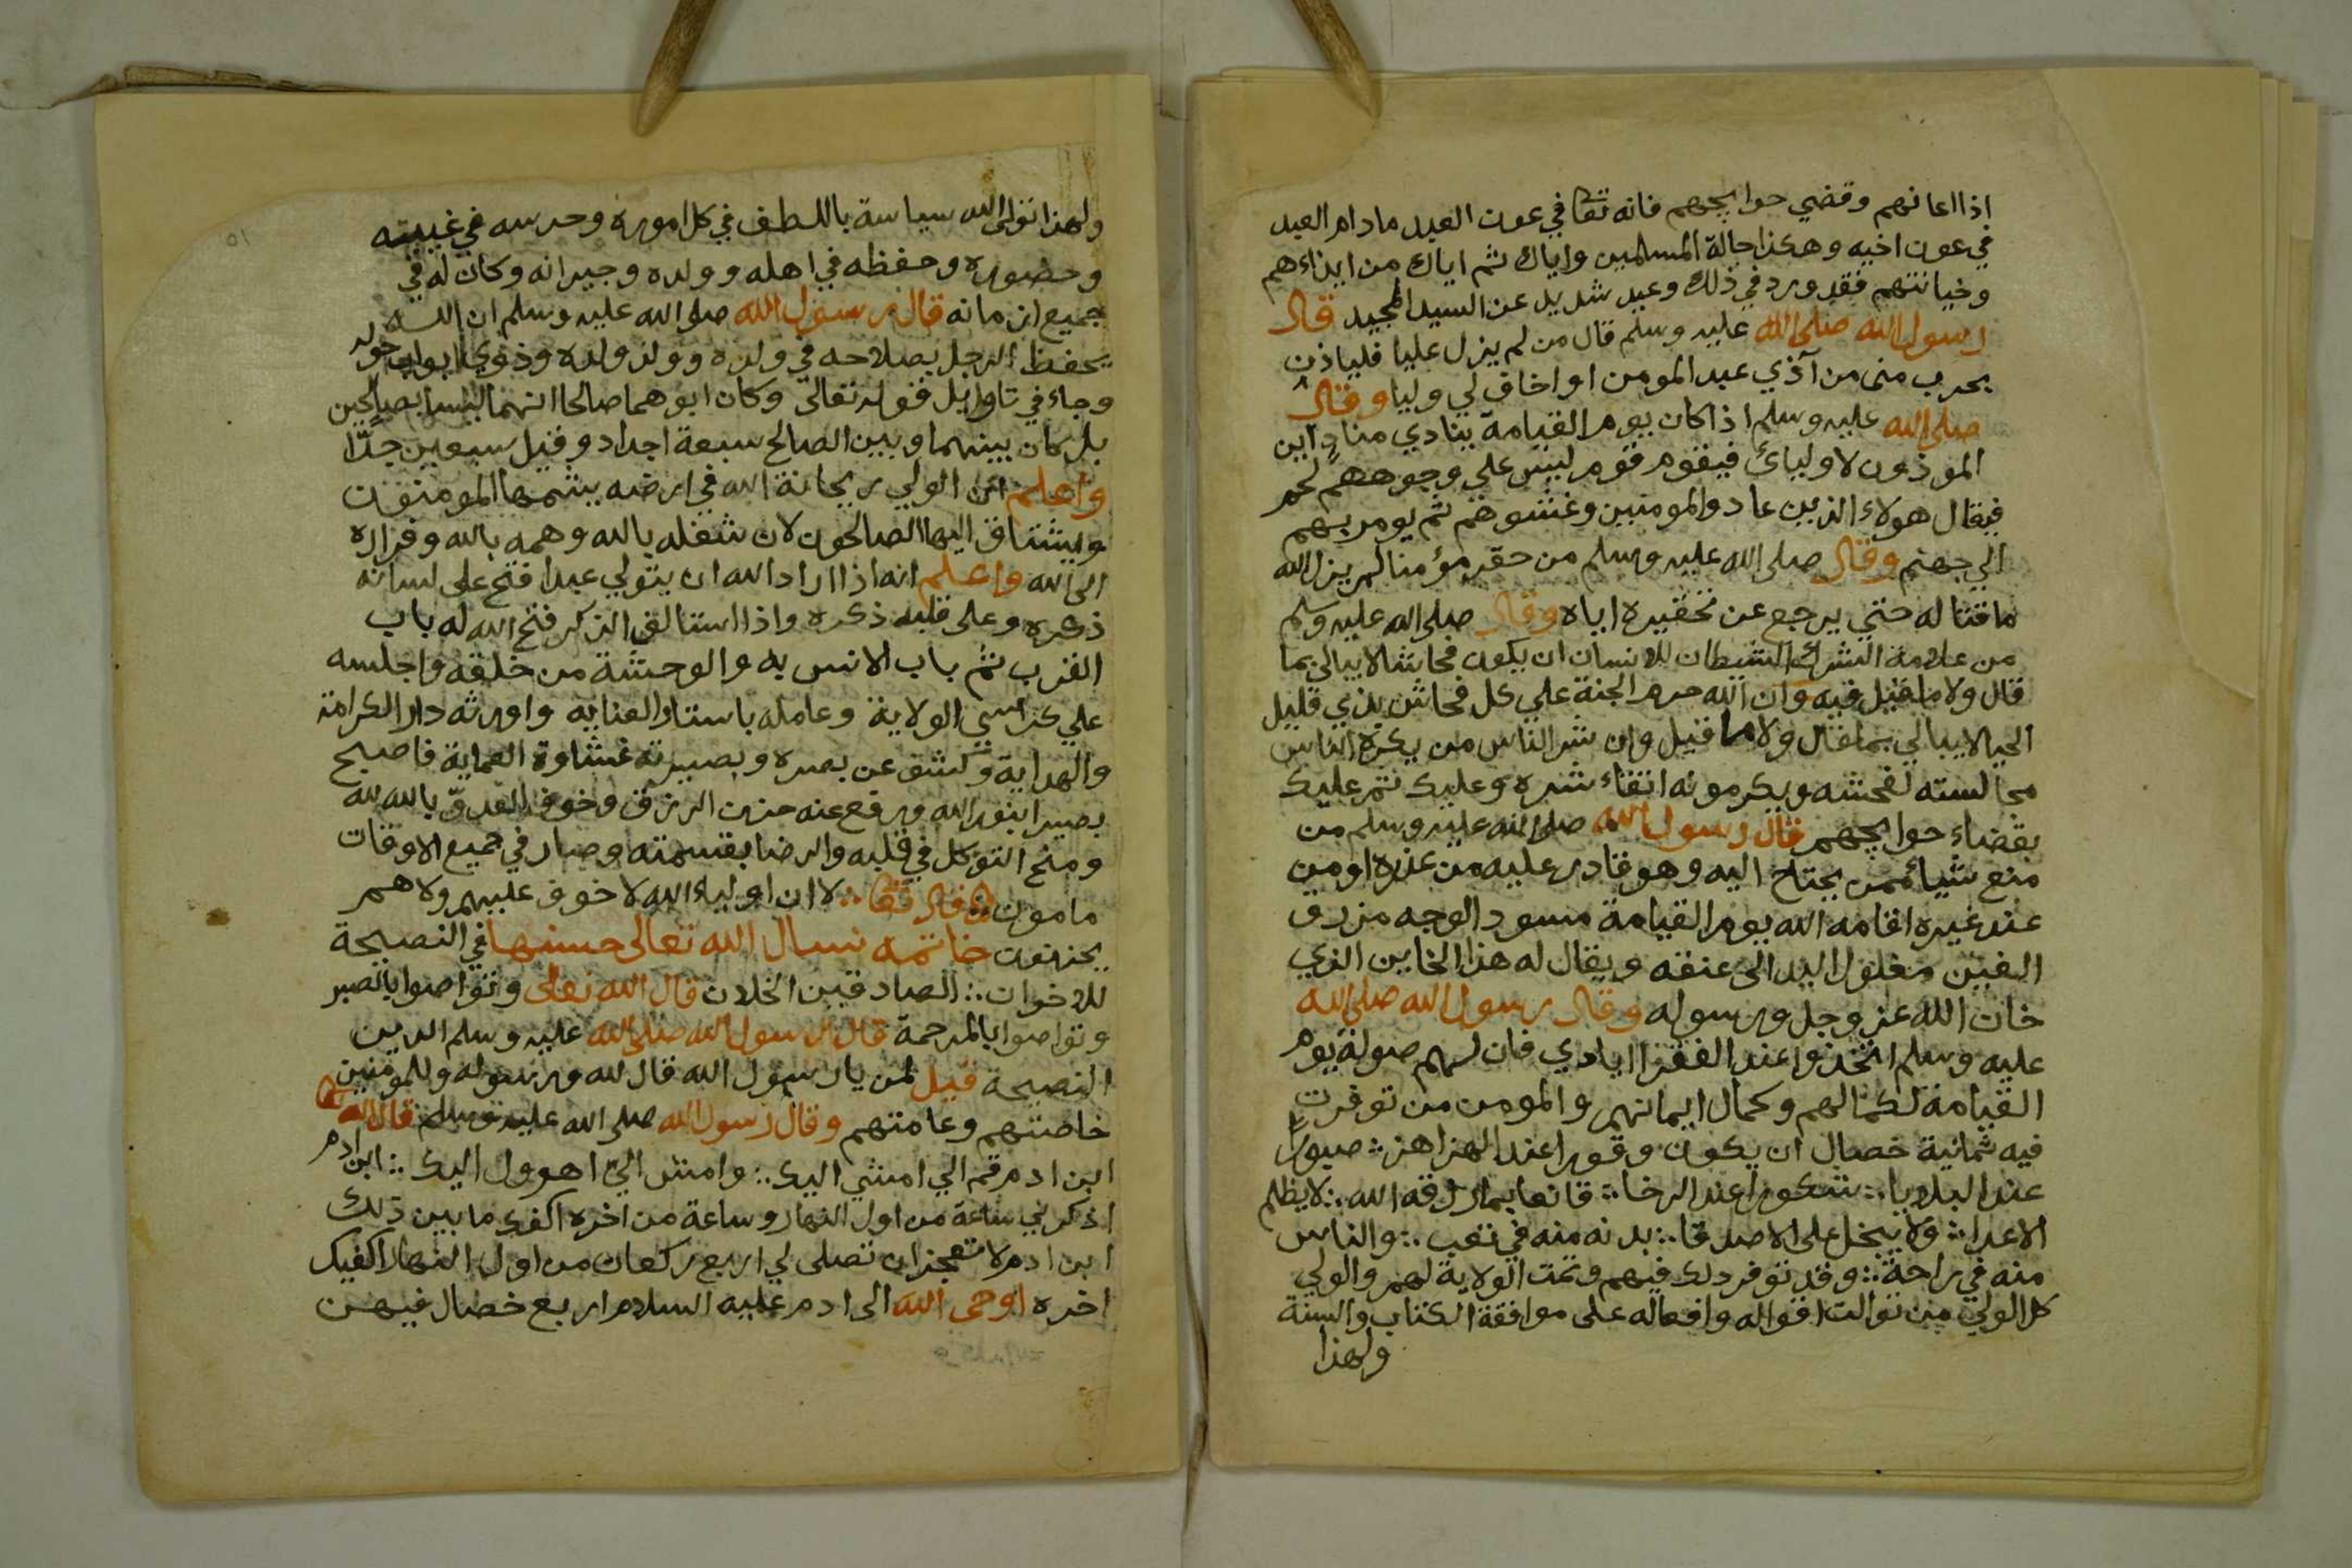 اذا اعانهم وقضي حوايجهم فانه تعا في عون العبد مادام العبد
في عون اخيه وهكذا حالة المسلمين واياك ثم اياك من ايذاءهم
وخيانتهم فقد ورد في ذلك وعيد شديد عن السيد المجيد قال
رسول الله صلى الله عليه وسلم قال من لم يزل عليا فلياذن
بحرب منى من آذي عبد المومن او اخاف لي وليا وقال
صلى الله عليه وسلم اذا كان يوم القيامة ينادي منادٍ اين
الموذون لاوليائ فيقوم قوم ليس على وجوههم لحم
فيقال هولاء الذين عادوا المومنين وغشوهم ثم يومر بهم
الي جهنم وقال صلى الله عليه وسلم من حقر مؤمنا لم يزل الله
ماقتا له حتي يرجع عن تحقيره اياه وقال صلى الله عليه وسلم
من علامة الشرك الشيطان للانسان ان يكون فحاشا لا يبالي بما
قال ولا ما قيل فيه وان الله حرم الجنة علي كل فحاش بذي قليل
الحيا لا يبالي بما قال ولا ما قيل وان شر الناس من يكره الناس
مجالسته لفحشه ويكرمونه اتقاء شره وعليك ثم عليك
بقضاء حوايجهم قال رسول الله صلى الله عليه وسلم من
منع شياء ممن يحتاج اليه وهو قادر عليه من عنده او من
عند غيره اقامه الله يوم القيامة مسود الوجه مزرق
العينين مغلول اليد الى عنقه ويقال له هذا الخاين الذي
خان الله عز وجل ورسوله وقال رسول الله صلى الله
عليه وسلم اتخذوا عند الفقرا ايادي فان لهم صولة يوم
القيامة لكمالهم وكمال ايمانهم والمومن من توفرت
فيه ثمانية خصال ان يكون وقورا عند الهزاهز ∴ صبورًا
عند البلايا ∴ شكورا عند الرخا ∴ قانعا بما رزقه الله ∴ لا يظلم
الاعدا ∴ ولا يبخل على الاصدقا ∴ بدنه منه في تعب ∴ والناس
منه في راحة ∴ وقد توفر ذلك فيهم وتمت الولاية لهم والولي
كل الولي من توالت اقواله وافعاله على موافقة الكتاب والسنة
ولهذا
ولهذا تولى الله سياسة باللطف في كل اموره وحرسه في غيبته
وحضوره وحفظه في اهله وولده وجيرانه وكان له في
جميع ازمانه قال رسول الله صلى الله عليه وسلم ان الله
يحفظ الرجل بصلاحه في ولده وولد ولده وذوي ابواب حوله
وجاء في تاوايل قوله تعالى وكان ابوهما صالحا انهما ليسا بصالحين
بل كان بينهما وبين الصالح سبعة اجداد وقيل سبعين جدّا
واعلم ان الولي ريحانة الله في ارضه يشمها المومنون
ويشتاق اليها الصالحون لان شغله بالله وهمه بالله وفراره
الى الله واعلم انه اذا اراد الله ان يتولي عبدا فتح على لسانه
ذكره وعلى قلبه ذكره واذا استالف الذكر فتح الله له باب
القرب ثم باب الانس به والوحشة من خلقه واجلسه
علي كراسي الولاية وعامله باستار العنايه واورثه دار الكرامة
والهداية وكشف عن بصره وبصيرته غشاوة العماية فاصبح
بصيرا بنور الله ورفع عنه حزن الرزق وخوف العدوّ بالله لله
ومنح التوكل في قلبه والرضا بقسمته وصار في جميع الاوقات
مامون قال تعا ∴ لا ان اولياء الله لا خوف عليهم ولا هم
يحزنون خاتمه نسال الله تعالى حسنها في النصيحة
للاخوان ∴ الصادقين الخلان قال الله تعالى وتواصوا بالصبر
وتواصوا بالمرحمة قال رسول الله صلى الله عليه وسلم الدين
النصيحة قيل لمن يا رسول الله قال لله ورسوله وللمومنين
خاصتهم وعامتهم وقال رسول الله صلى الله عليه وسلم قال الله تعا
ابن ادم قم الي امشي اليك ∴ وامش الي اهرول اليك ∴ ابن ادم
اذكرني ساعة من اول النهار وساعة من اخره اكفك ما بين ذلك
ابن ادم لا تعجز ان تصلى لي اربع ركعات من اول النهار اكفيك
اخره اوحى الله الى ادم عليه السلام اربع خصال فيهن